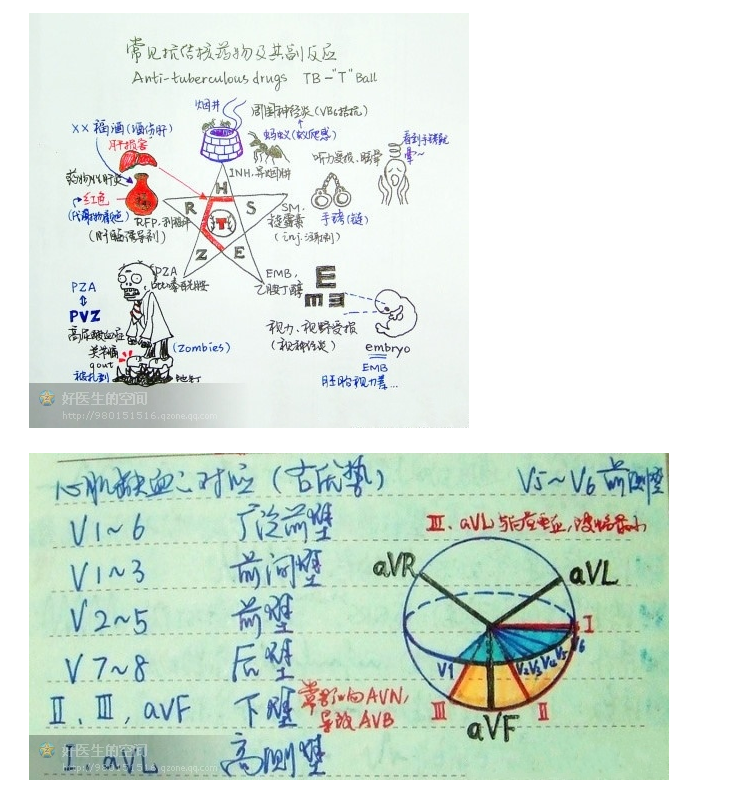 常见抗结核药物及其副反应
Anti-tuberculous drugs TB-"T" Ball
烟井
周围神经炎(VB6拮抗)
XX福酒(酒伤肝)
蚂蚁(蚁爬感)
看到手铐就晕~
肝损害
听力受损、眩晕
INH,异烟肼
药物性肝炎
H
R
S
T
Z
E
红色
(代谢物颜色)
RFP,利福平
(肝酶诱导剂)
SM,
链霉素
(inj.注射剂)
手铐(链)
PZA
吡嗪酰胺
EMB,
乙胺丁醇
E
PZA
PVZ
高尿酸血症
类关痛
gout
(Zombies)
被扎到
地钉
视力、视野受损
(视神经炎)
embryo
EMB
胚胎视力差...
好医生的空间
http://980151516.qzone.qq.com
心肌缺血心对应(古氏势)
V5~V6 前侧壁
V1~6 广泛前壁
III、aVL与向量垂直,波幅最小
V1~3 前间壁
aVR
aVL
V2~5 前壁
I
V7~8 后壁
V1
V2 V3 V4 V5 V6
II、III、aVF 下壁
常影响AVN,
导致AVB
III
II
aVF
I、aVL 高侧壁
好医生的空间
http://980151516.qzone.qq.com